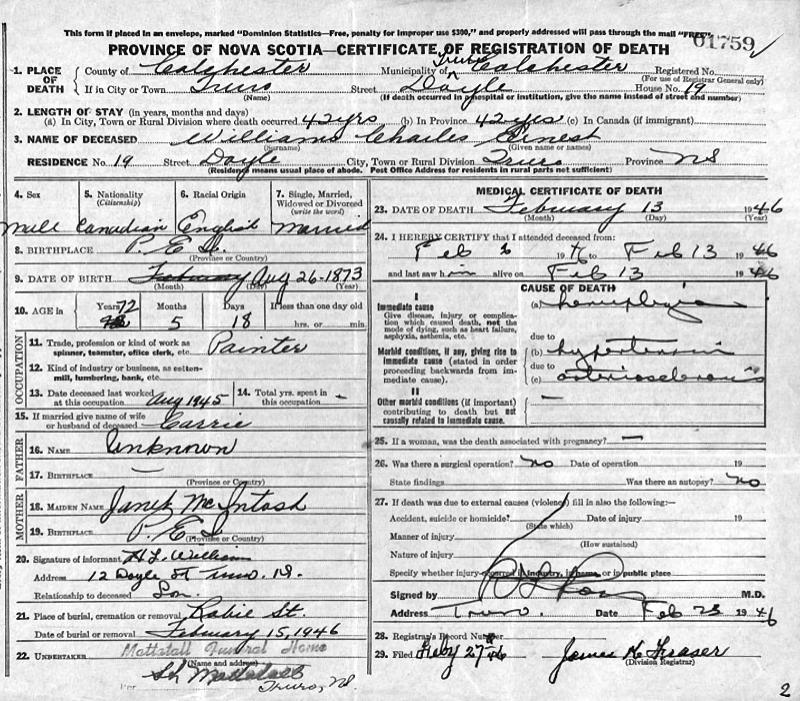 This form if placed in an envelope, marked "Dominion Statistics—Free, penalty for improper use $300," and properly addressed will pass through the mail "FREE"
PROVINCE OF NOVA SCOTIA—CERTIFICATE OF REGISTRATION OF DEATH
01759
1. PLACE OF DEATH
County of Colchester Municipality of Truro Colchester Registered No.
(For use of Registrar General only)
If in City or Town Truro Street Doyle House No. 19
(Name) (If death occurred in hospital or institution, give the name instead of street and number)
2. LENGTH OF STAY (in years, months and days)
(a) In City, Town or Rural Division where death occurred 42 yrs (b) In Province 42 yrs (c) In Canada (if immigrant)
3. NAME OF DECEASED Williams Charles Ernest
(Surname) (Given name or names)
RESIDENCE No. 19 Street Doyle City, Town or Rural Division Truro Province NS
(Residence means usual place of abode. Post Office Address for residents in rural parts not sufficient)
4. Sex
5. Nationality (Citizenship)
6. Racial Origin
7. Single, Married, Widowed or Divorced (write the word)
Male Canadian English Married
8. BIRTHPLACE P.E.I.
(Province or Country)
9. DATE OF BIRTH February Aug 26-1873
(Month) (Day) (Year)
10. AGE in Years 72 Months 5 Days 18 If less than one day old hrs. or min.
OCCUPATION
11. Trade, profession or kind of work as spinner, teamster, office clerk, etc. Painter
12. Kind of industry or business, as cotton-mill, lumbering, bank, etc.
13. Date deceased last worked at this occupation Aug 1945 14. Total yrs. spent in this occupation –
15. If married give name of wife or husband of deceased Carrie
FATHER
16. NAME Unknown
17. BIRTHPLACE —
(Province or Country)
MOTHER
18. MAIDEN NAME McIntosh
19. BIRTHPLACE P.E.I.
(Province or Country)
20. Signature of informant H L William
Address 12 Doyle St Truro.
Relationship to deceased Son.
21. Place of burial, cremation or removal Robie St.
Date of burial or removal February 15, 1946
22. UNDERTAKER Mattatall Funeral Home
(Name and address)
Mattatall
Per Truro, NS.
MEDICAL CERTIFICATE OF DEATH
23. DATE OF DEATH February 13 1946
(Month) (Day) (Year)
24. I HEREBY CERTIFY that I attended deceased from:
Feb 19 46 to Feb 13 19 46
and last saw him alive on Feb 13 19 46
CAUSE OF DEATH
I
Immediate cause
Give disease, injury or complication which caused death, not the mode of dying, such as heart failure, asphyxia, asthenia, etc.
(a) hemiplegia
due to
Morbid conditions, if any, giving rise to immediate cause (stated in order proceeding backwards from immediate cause).
(b) hypertension
due to
(c) arteriosclerosis
II
Other morbid conditions (if important) contributing to death but not causally related to immediate cause.
—
25. If a woman, was the death associated with pregnancy? —
26. Was there a surgical operation? no Date of operation 19
State findings Was there an autopsy? No
27. If death was due to external causes (violence) fill in also the following:—
Accident, suicide or homicide? Date of injury 19
(State which)
Manner of injury
(How sustained)
Nature of injury
Specify whether injury occurred in industry, in home or in public place
Signed by M.D.
Address Truro. Date Feb 23 19 46
28. Registrar's Record Number
29. Filed 27 46 James H Fraser
(Division Registrar)
2